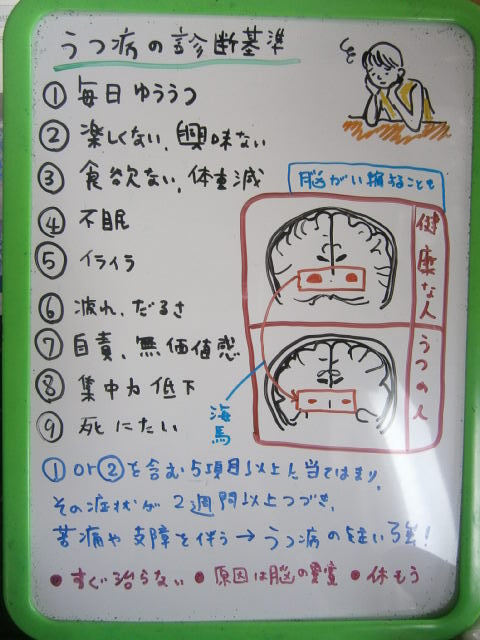 うつ病の診断基準
① 毎日ゆううつ
② 楽しくない、興味ない
③ 食欲ない、体重減
④ 不眠
⑤ イライラ
⑥ 疲れ、だるさ
⑦ 自責、無価値感
⑧ 集中力低下
⑨ 死にたい
脳がい縮することも
健康な人
うつの人
海馬
①or②を含む5項目以上に当てはまり、
その症状が2週間以上つづき、
苦痛や支障を伴う→うつ病の疑い強!
●すぐ治らない ●原因は脳の異変 ●休もう